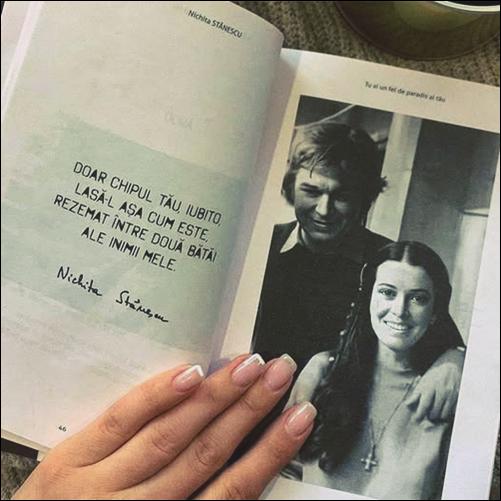 Nichita STĂNESCU
DOAR CHIPUL TĂU, IUBITO,
LASĂ-L AȘA CUM ESTE,
REZEMAT ÎNTRE DOUĂ BĂTĂI
ALE INIMII MELE.
Nichita Stănescu
46
Tu ai un fel de paradis al tău